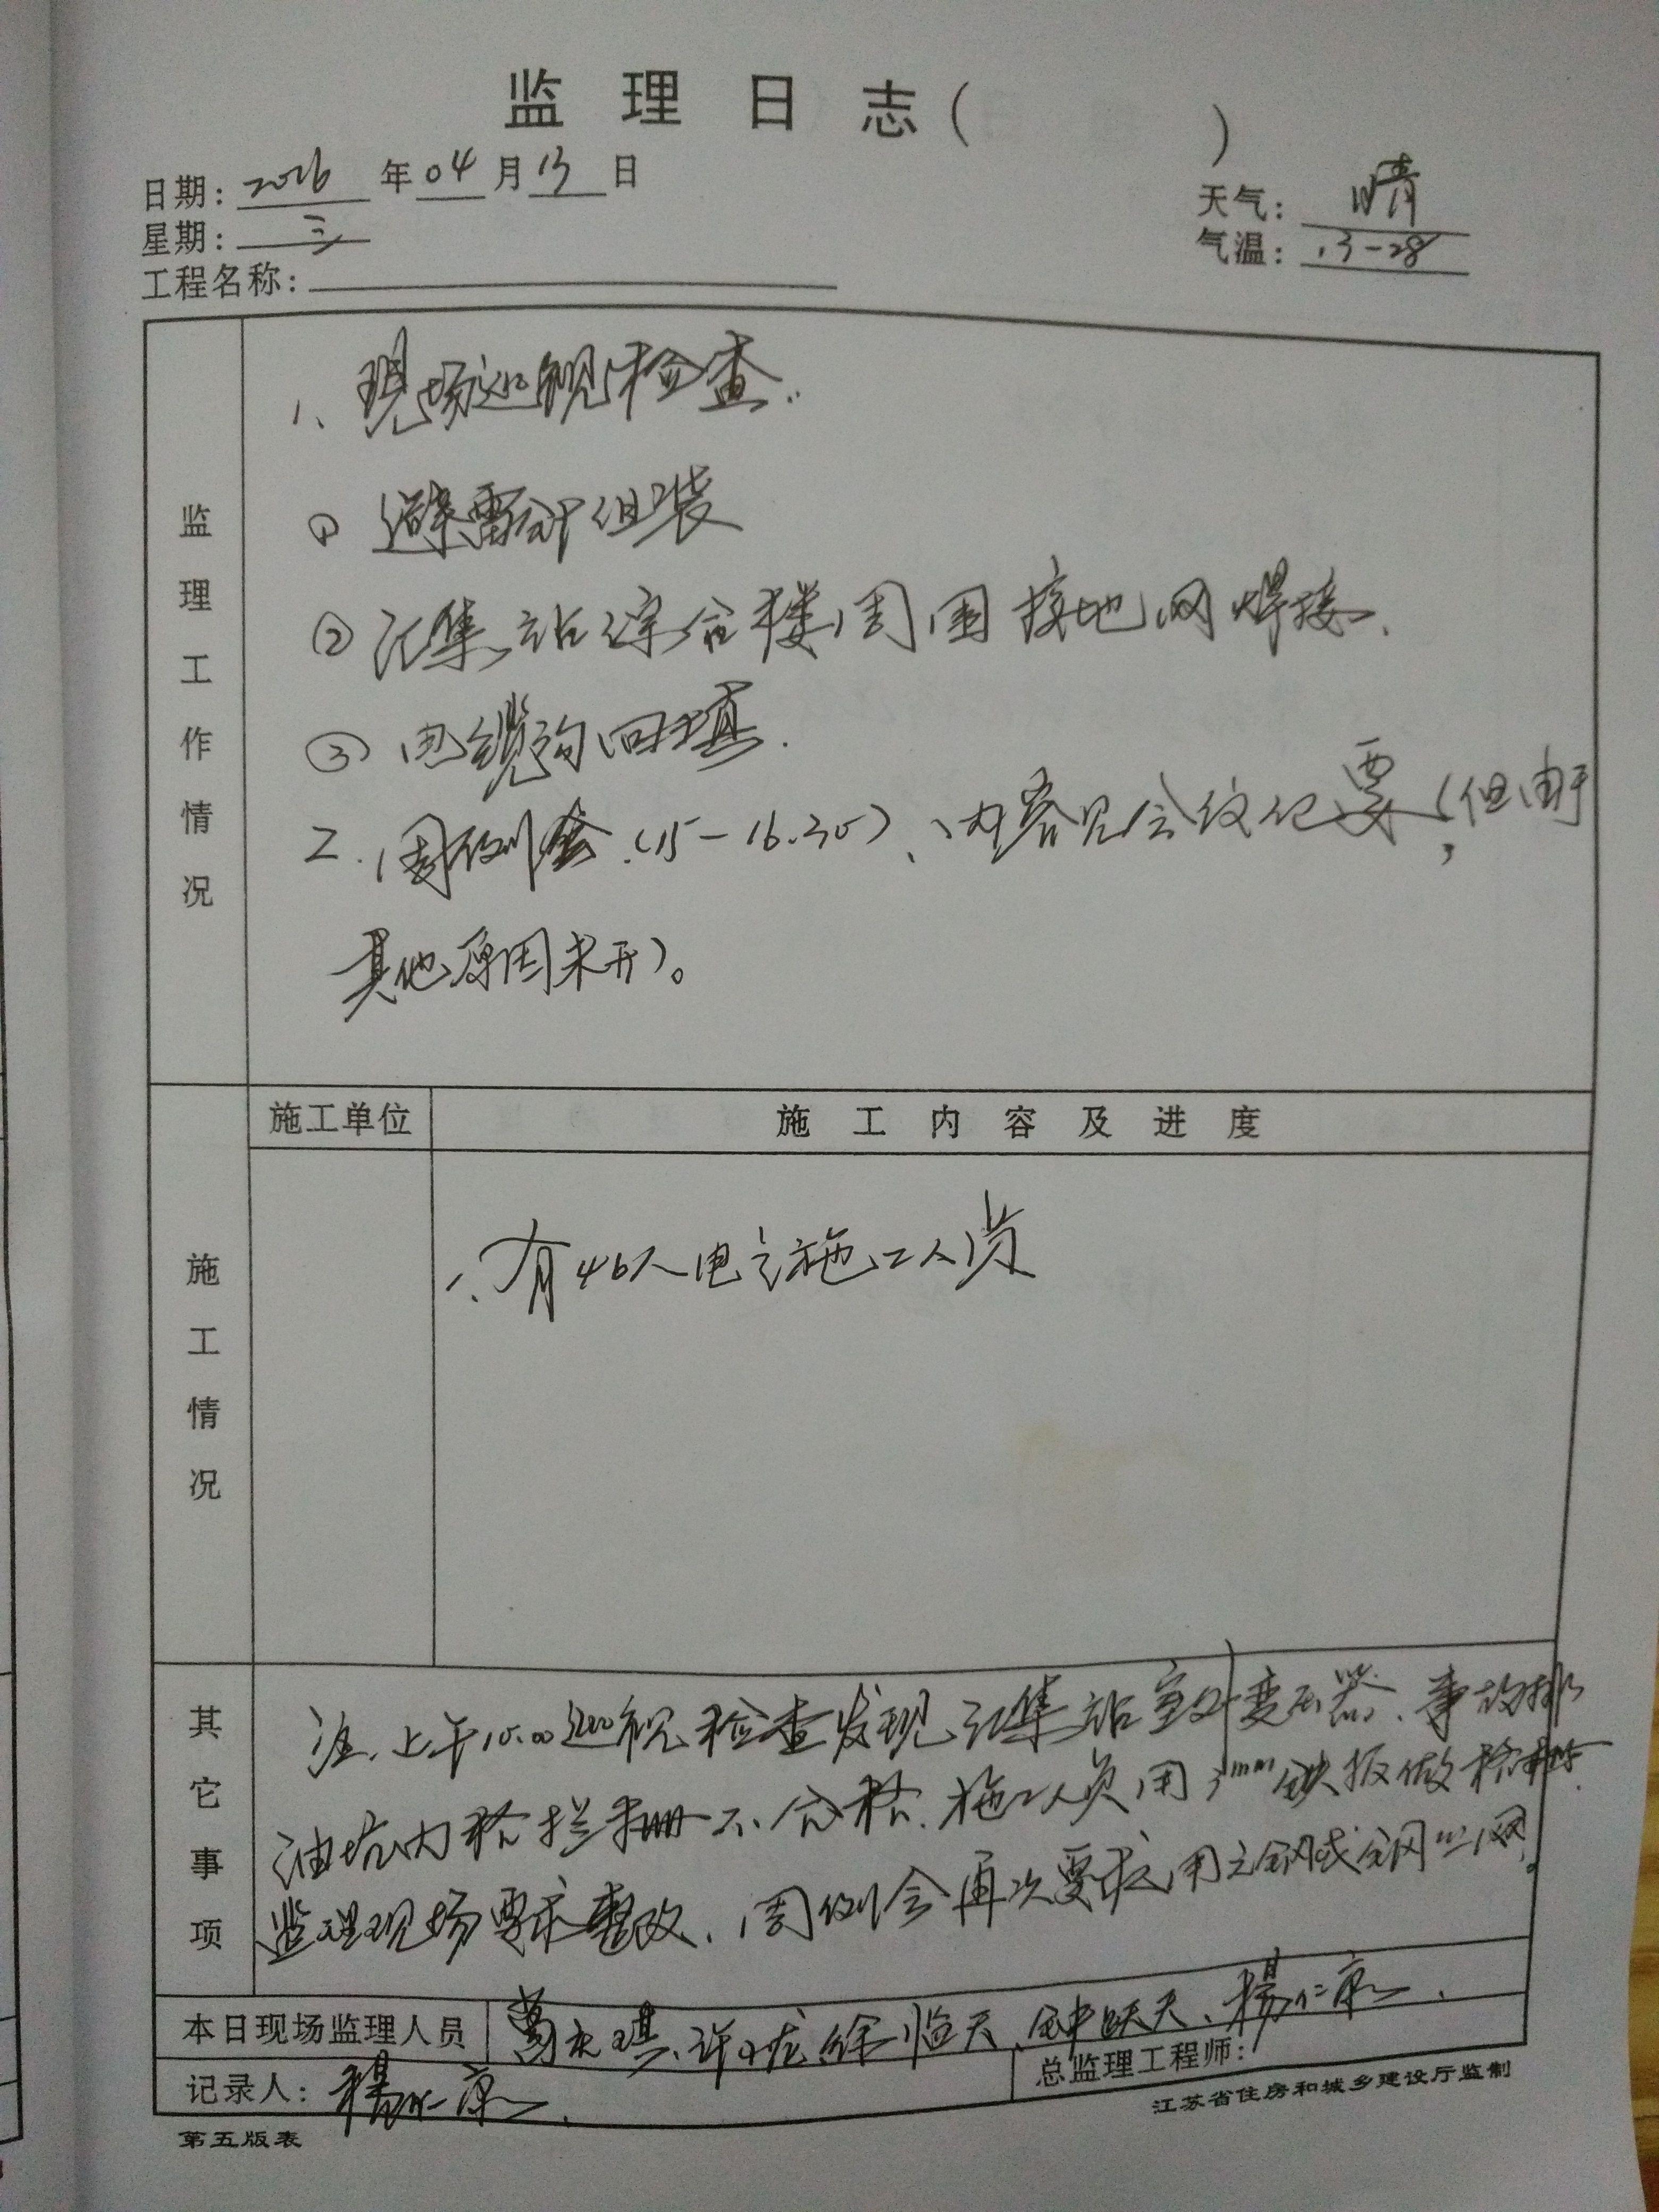 监理日志( )
日期: 2016 年 04 月 13 日
天气: 晴
星期: 三
气温: 13-28
工程名称:
监理工作情况
1、现场巡视检查.
① 避雷针组装
② 汇集站综合楼周围接地网焊接、
③ 电缆沟回填.
2.周例会.(15-16.30)、内容见会议纪要,(但由于
其他原因未开)。
施工情况
施工单位
施工内容及进度
1、有46人电气施工人员
其它事项
注.上午10.00巡视检查发现汇集站室外变压器、事故排
油坑内格拦栅不合格.施工人员用3mm铁板做格栅.
监理现场要求整改、周例会再次要求用元钢或钢丝网。
本日现场监理人员
徐临天、钟跃天、杨仁京、
记录人: 杨仁京、
总监理工程师:
第五版表
江苏省住房和城乡建设厅监制